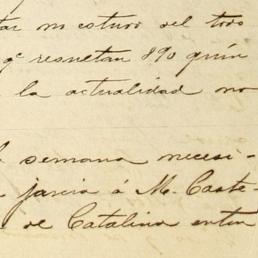 tar no estuvo del todo
q.e resultan 890 quin
la actualidad no
semana necesi-
jarcia á M. Caste-
de Catalina entre